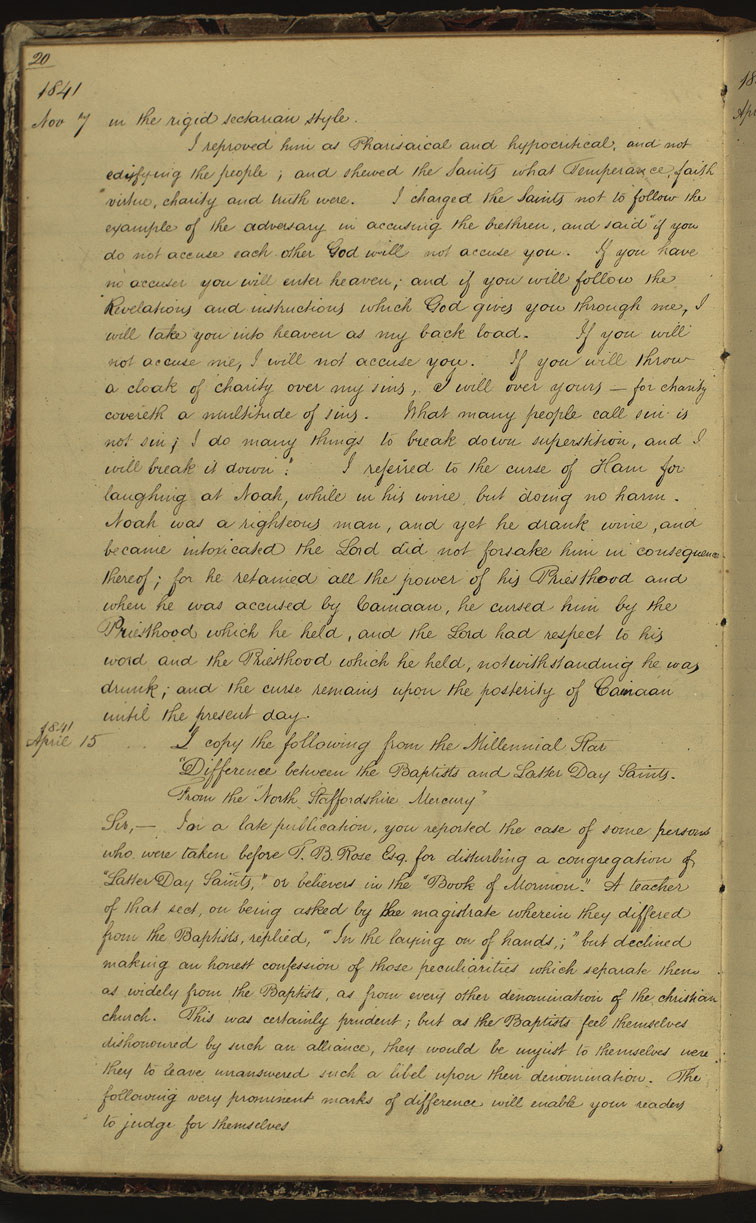 20
1841
Nov 7 in the rigid sectarian style.
I reproved him as Pharisaical and hypocritical, and not
edifying the people; and shewed the Saints what Temperance, faith
virtue, charity and truth were. I charged the Saints not to follow the
example of the adversary in accusing the brethren, and said "if you
do not accuse each other God will not accuse you. If you have
no accuser you will enter heaven; and if you will follow the
Revelations and instructions which God gives you through me, I
will take you into heaven as my back load. If you will
not accuse me, I will not accuse you. If you will throw
a cloak of charity over my sins, I will over yours — for charity
covereth a multitude of sins. What many people call sin is
not sin; I do many things to break down superstition, and I
will break it down". I referred to the curse of Ham for
laughing at Noah, while in his wine but doing no harm.
Noah was a righteous man, and yet he drank wine, and
became intoxicated the Lord did not forsake him in consequence
thereof; for he retained all the power of his Priesthood and
when he was accused by Canaan, he cursed him by the
Priesthood which he held, and the Lord had respect to his
word and the Priesthood which he held, notwithstanding he was
drunk; and the curse remains upon the posterity of Canaan
until the present day.
1841
April 15 I copy the following from the Millennial Star
"Difference between the Baptists and Latter Day Saints.
From the "North Staffordshire Mercury"
Sir,— In a late publication, you reported the case of some persons
who were taken before T. B. Rose Esq. for disturbing a congregation of
"Latter Day Saints," or believers in the "Book of Mormon." A teacher
of that sect, on being asked by the magistrate wherein they differed
from the Baptists, replied, "In the laying on of hands,;" but declined
making an honest confession of those peculiarities which separate them
as widely from the Baptists, as from every other denomination of the christian
church. This was certainly prudent; but as the Baptists feel themselves
dishonoured by such an alliance, they would be unjust to themselves were
they to leave unanswered such a libel upon their denomination. The
following very prominent marks of difference will enable your readers
to judge for themselves
18
Apr